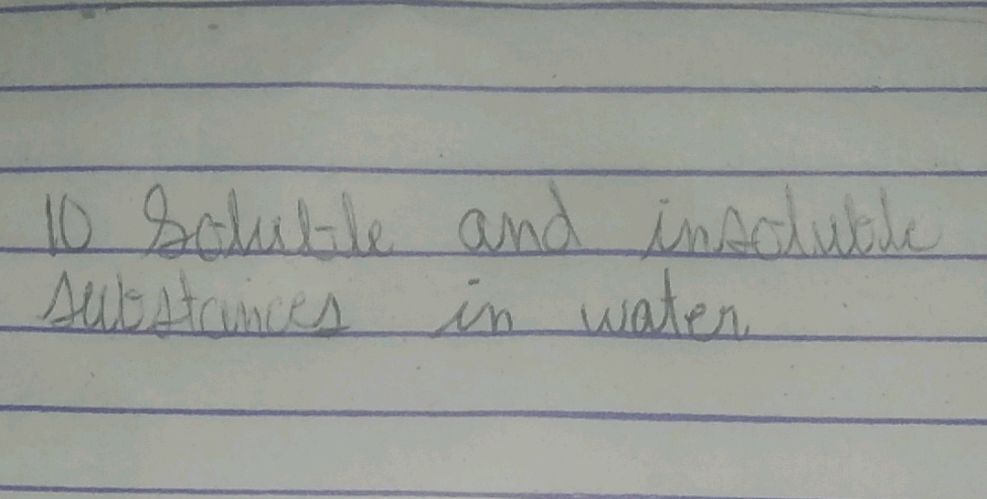 10 Soluble and insoluble
substances in water.